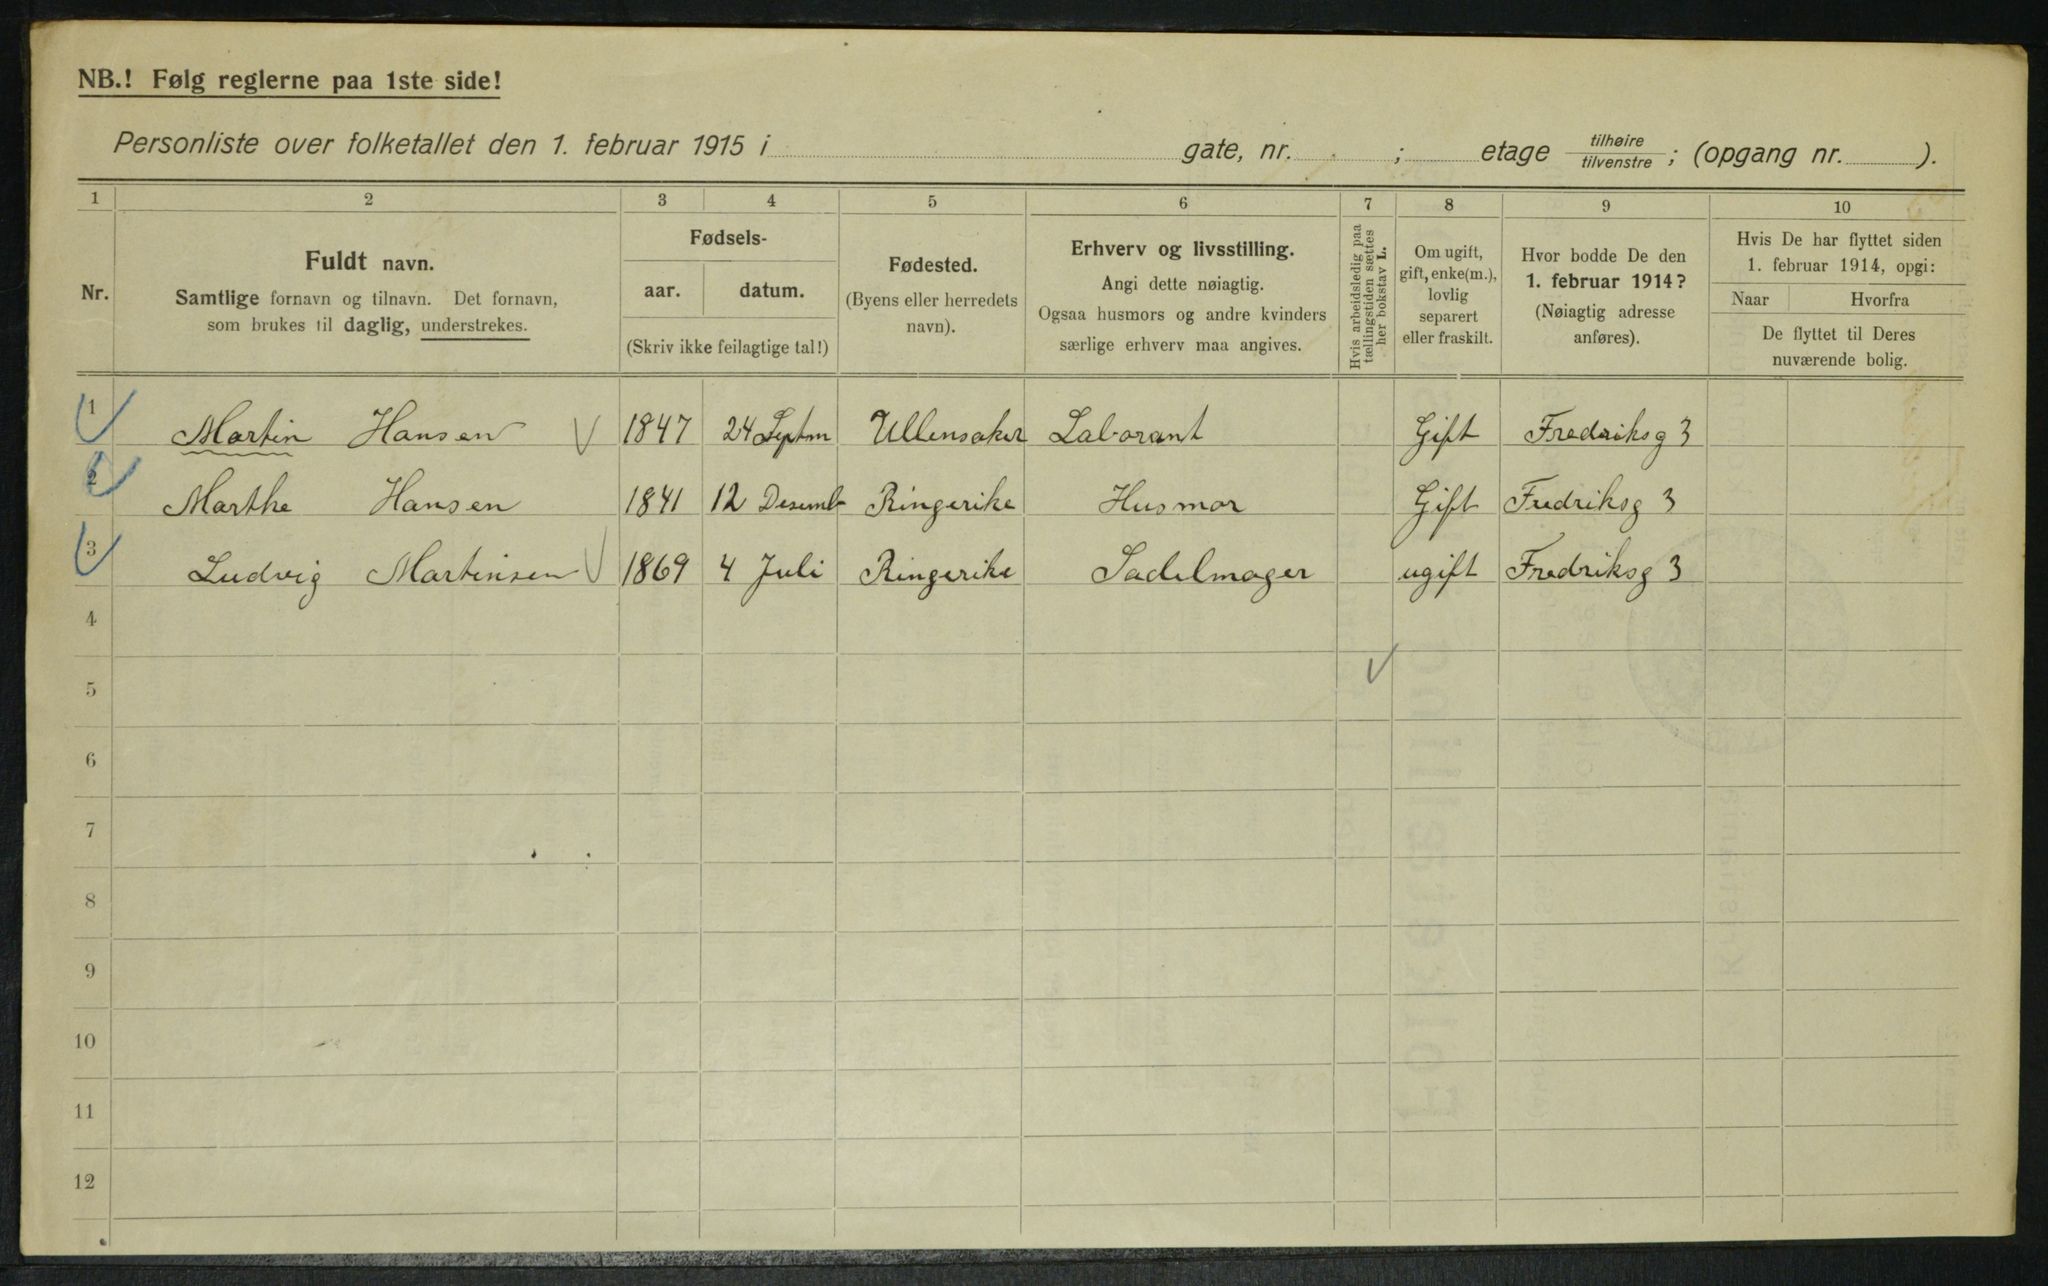 NB.! Følg reglerne paa 1ste side!
Personliste over folketallet den 1. februar 1915 i gate, nr. ; etage tilhøire / tilvenstre ; (opgang nr. ).
1 2 3 4 5 6 7 8 9 10
Nr.
Fuldt navn.
Samtlige fornavn og tilnavn. Det fornavn,
som brukes til daglig, understrekes.
Fødsels-
aar. datum.
(Skriv ikke feilagtige tal!)
Fødested.
(Byens eller herredets
navn).
Erhverv og livsstilling.
Angi dette nøiagtig.
Ogsaa husmors og andre kvinders
særlige erhverv maa angives.
Hvis arbeidsledig paa
tællingstiden sættes
her bokstav L.
Om ugift,
gift, enke(m.),
lovlig
separert
eller fraskilt.
Hvor bodde De den
1. februar 1914?
(Nøiagtig adresse
anføres).
Hvis De har flyttet siden
1. februar 1914, opgi:
Naar Hvorfra
De flyttet til Deres
nuværende bolig.
1 Martin Hansen 1847 24 Septm Ullensaker Laborant Gift Fredriksg 3
2 Marthe Hansen 1841 12 Desemb Ringerike Husmor Gift Fredriksg 3
3 Ludvig Martinsen 1869 4 Juli Ringerike Sadelmager ugift Fredriksg 3
4
5
6
7
8
9
10
11
12